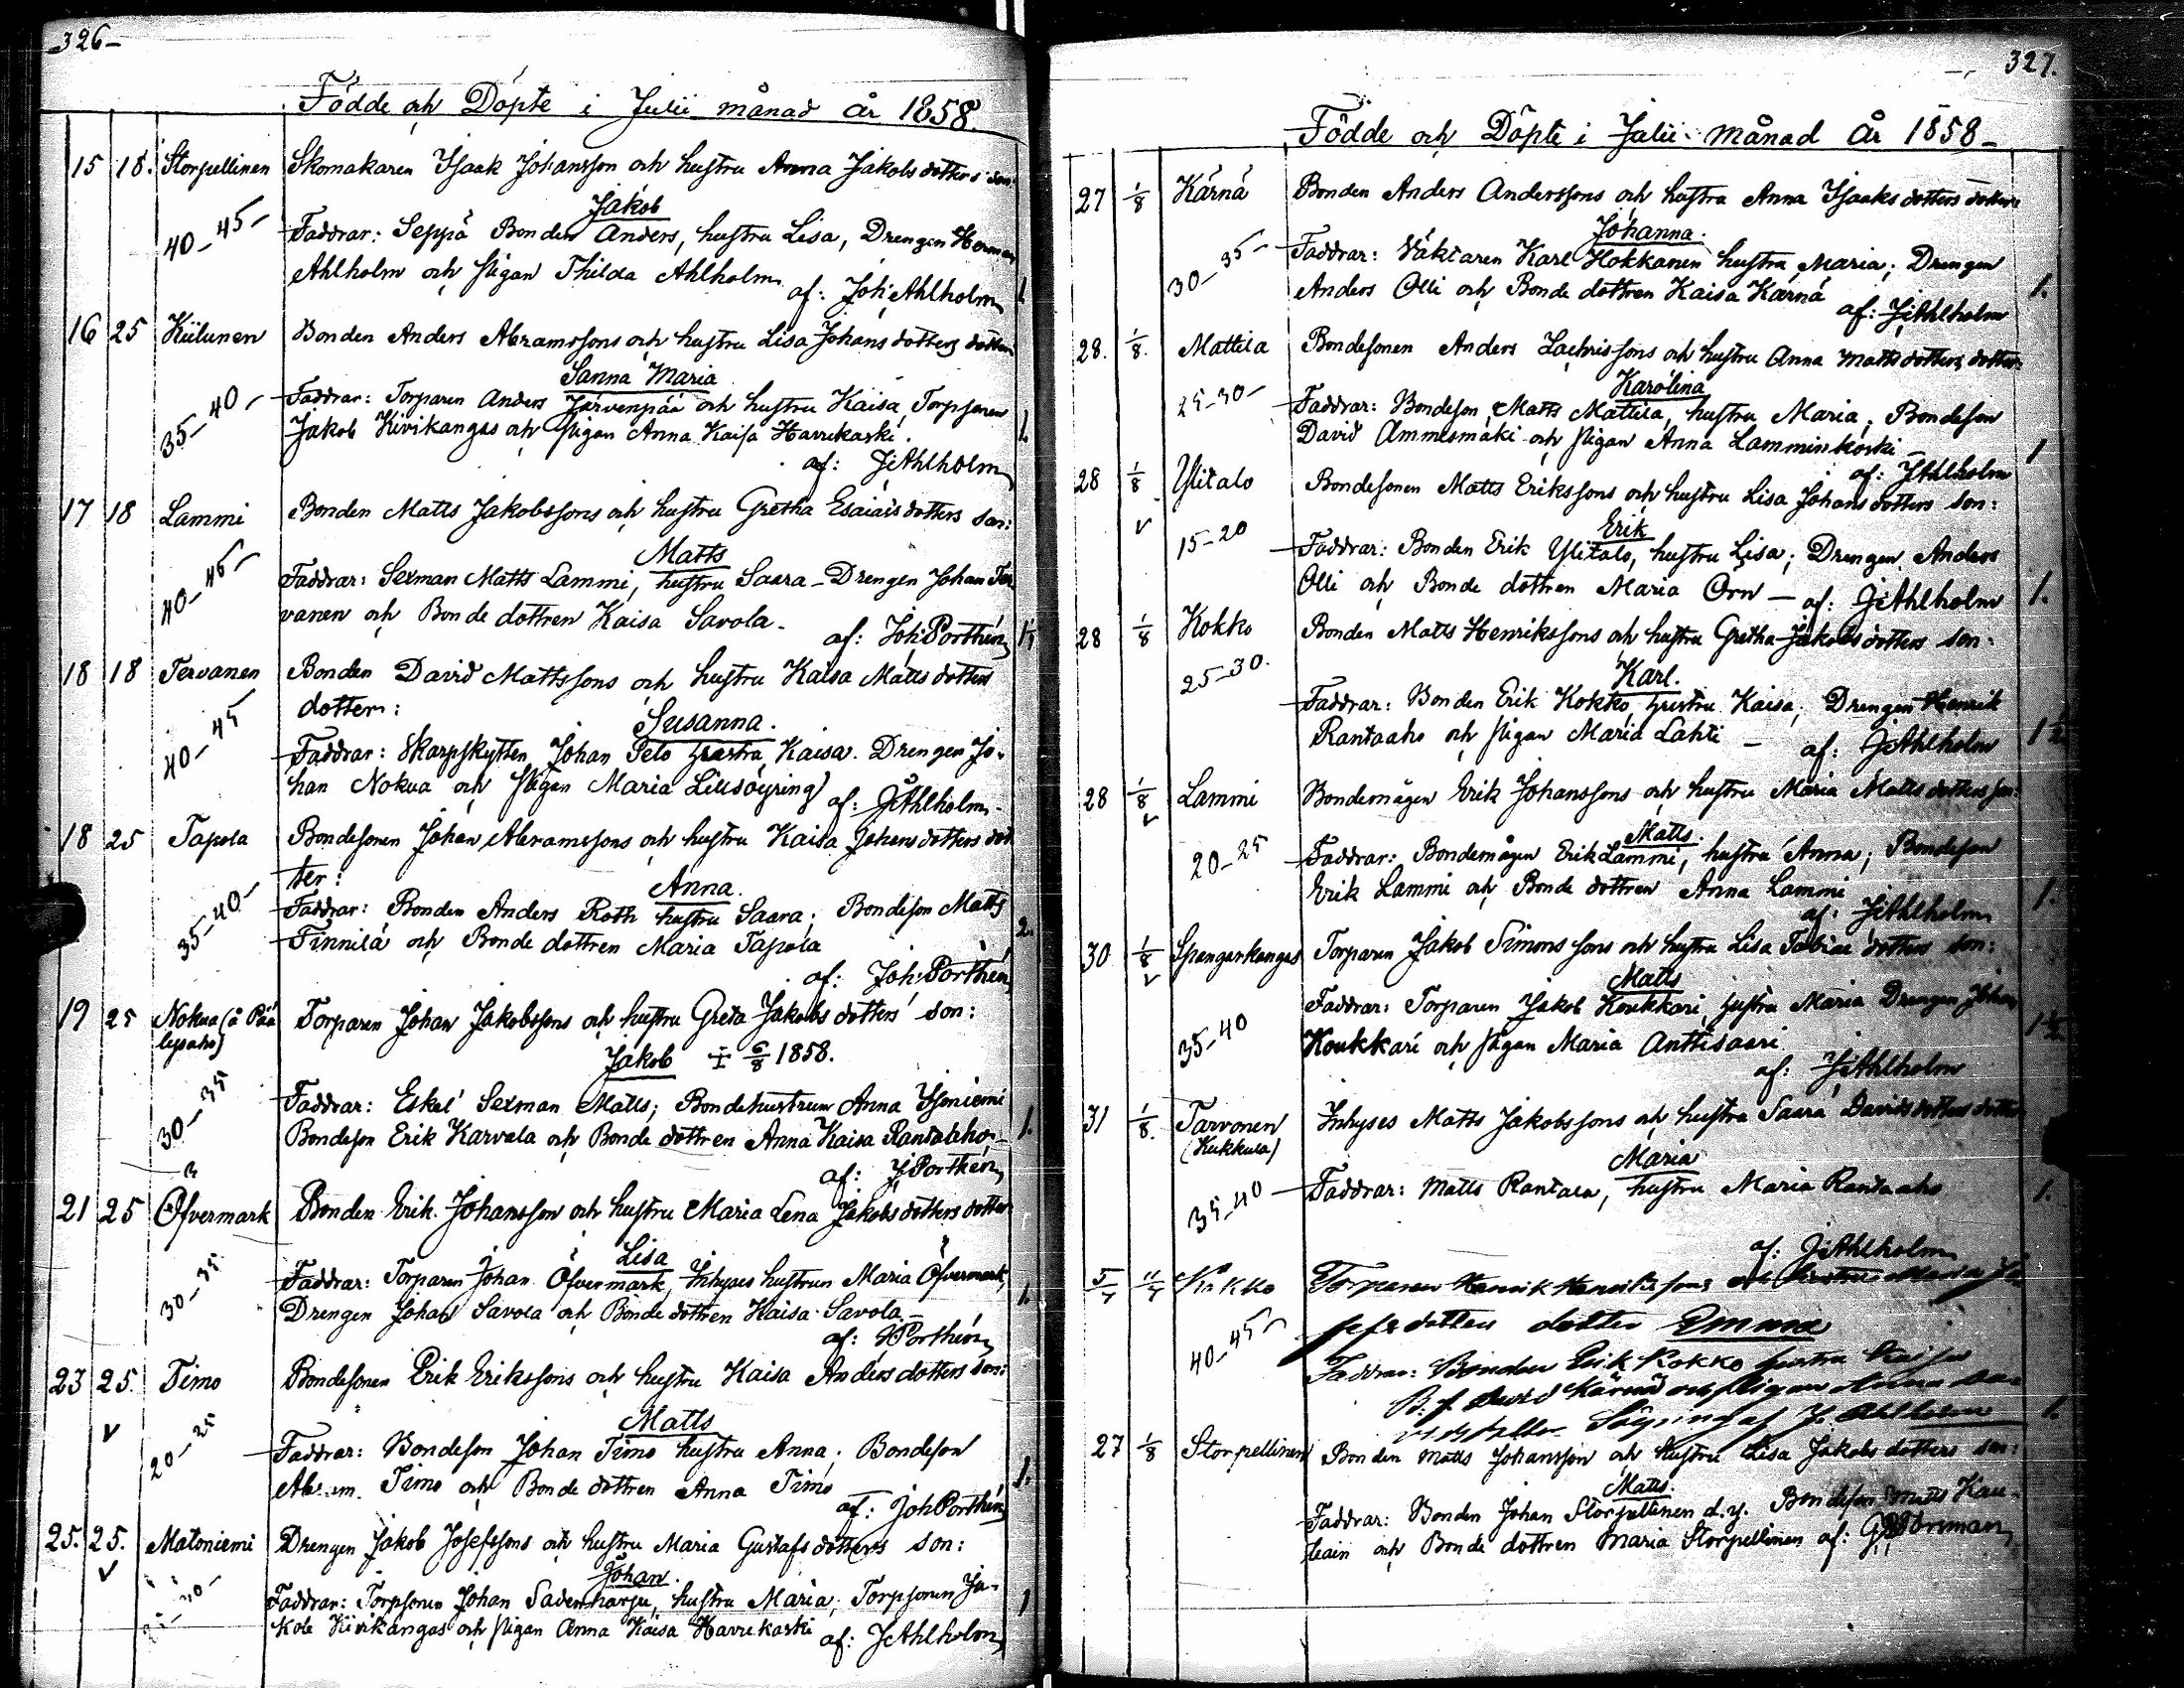 326-
Födde och Döpte i Julii månad år 1858.
15 18. Storpellinen Skomakaren Isaak Johansson och hustru Anna Jakobs dotters son:
Jakob
40-45- Faddrar: Seppä Bonden Anders, hustru Lisa, Drengen Herman
Ahlholm och pigan Thilda Ahlholm. af: Joh: Ahlholm 1
16 25 Kiilunen Bonden Anders Abramssons och hustru Lisa Johans dotters dotter
Sanna Maria
35-40- Faddrar: Torparen Anders Järvenpää och hustru Kaisa, Torpsonen
Jakob Kivikangas och pigan Anna Kaisa Harrikaski. 1.
af: J:Ahlholm
17 18 Lammi Bonden Matts Jakobssons och hustru Gretha Esaiäs dotters son:
Matts
40-45- Faddrar: Sexman Matts Lammi, hustru Saara - Drengen Johan Ter
vanen och Bonde dottren Kaisa Savola - af: Joh: Porthén
18 18 Tervanen Bonden David Mattssons och hustru Kaisa Matts dotters
dotter:
Susanna.
40-45 Faddrar: Skarpskytten Johan Pelo hustru Kaisa. Drengen Jo-
han Nokua och pigan Maria Lillsöyring af: J:Ahlholm
18 25 Tapola Bondesonen Johan Abramssons och hustru Kaisa Johans dotters dot
ter:
Anna.
35-40- Faddrar: Bonden Anders Roth hustru Saara; Bondeson Matts
Finnilä och Bonde dottren Maria Tapola 2.
af: Joh: Porthén
19 25 Nokua (å Pää Torparen Johan Jakobssons och hustru Greta Jakobs dotters son:
lysaho)
Jakob ‡ 6/8 1858.
30-35 Faddrar: Eskel Sexman Matts; Bondehustrun Anna Isoniemi
Bondeson Erik Karvala och Bonde dottren Anna Kaisa Rantaaho - 1.
af: J:Porthén
21 25 Öfvermark Bonden Erik Johansson och hustru Maria Lena Jakobs dotters dotter
Lisa
30-35 Faddrar: Torparen Johan Öfvermark, Inhyses hustrun Maria Öfvermark,
Drengen Johan Savola och Bonde dottren Kaisa Savola - 1.
af: J:Porthén
23 25. Timo Bondesonen Erik Erikssons och hustru Kaisa Anders dotters son:
v Matts
20-25 Faddrar: Bondeson Johan Timo hustru Anna; Bondeson
Timo och Bonde dottren Anna Timo 1.
af: Joh Porthén
25. 25. Matoniemi Drengen Jakob Josefssons och hustru Maria Gustafs dotters son:
v Johan.
Faddrar: Torpsonen Johan Sadenharju, hustru Maria; Torpsonen Ja-
kob Kivikangas och pigan Anna Kaisa Harrikaski af: J:Ahlholm 1
327.
Födde och Döpte i Julii månad år 1858-
27 1/8 Kärnä Bonden Anders Anderssons och hustru Anna Isaaks dotters dotter
Johanna.
30-35- Faddrar: Väktaren Karl Hokkanen hustru Maria; Drengen
Anders Olli och Bonde dottren Kaisa Kärnä 1.
af: J:Ahlholm
28. 1/8. Mattila Bondesonen Anders Zachrissons och hustru Anna Matts dotters dotter:
Karolina
25-30- Faddrar: Bondeson Matts Mattila, hustru Maria; Bondeson
David Ammesmäki och pigan Anna Lamminkoski - 1
af: J:Ahlholm
28 1/8 Ylitalo Bondesonen Matts Erikssons och hustru Lisa Johans dotters son:
v Erik
15-20 Faddrar: Bonden Erik Ylitalo, hustru Lisa; Drengen Anders
Olli och Bonde dottren Maria Orn - af: J:Ahlholm 1.
28 1/8 Kokko Bonden Matts Henrikssons och hustru Gretha Jakobs dotters son:
Karl.
25-30. Faddrar: Bonden Erik Kokko hustru Kaisa; Drengen Henrik
Rantaaho och pigan Maria Lahti - af: J:Ahlholm
28 1/8 Lammi Bondemågen Erik Johanssons och hustru Maria Matts dotters son
v Matts.
20-25 Faddrar: Bondemågen Erik Lammi, hustru Anna; Bondeson
Erik Lammi och Bonde dottren Anna Lammi 1.
af: J:Ahlholm
30 1/8 Spangarkangas Torparen Jakob Simons sons och hustru Lisa Tobias dotters son:
v Matts
Faddrar: Torparen Jakob Koukkari, hustru Maria Drengen Johan
35-40 Koukkari och pigan Maria Anttisaari
af: J:Ahlholm
31 1/8. Tarvonen Inhyses Matts Jakobssons och hustru Saara Davids dotters dotter
(Kukkula)
Maria
35-40 Faddrar: Matts Rantala, hustru Maria Rantaaho 1.
af: J:Ahlholm
5/7 11/7 Kokko Torparen Henrik Henrikssons och hustru Maria Jo
sefs dotters dotter Emma
40-45- Faddrar: Bonden Erik Kokko hustru Kaisa
B. s. David Kärnä och pigan Anna
Söyring af J. Ahlholm 1.
27 1/8 Storpellinen Bonden Matts Johansson och hustru Lisa Jakobs dotters son:
Matts.
Faddrar: Bonden Johan Storpellinen d.y. Bondeson Matts Kau-
leain och Bonde dottren Maria Storpellinen af: